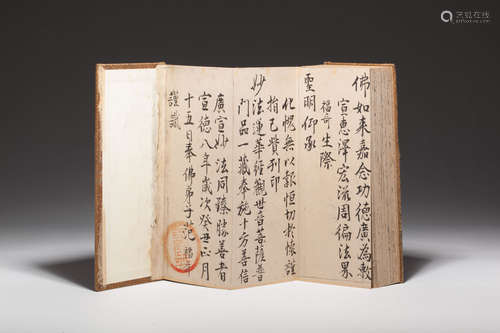 佛如来嘉念功德廣為敷
宣恵澤宏滋周徧法界
福奇生際
聖明仰承
化愧無以報恒切於懐謹
指己貲刊印
妙法蓮華經觀世音菩薩普
門品一藏奉施十方善信
廣宣妙法同臻勝善者
宣德八年歲次癸丑正月
十五日奉佛弟子范福奇
謹識